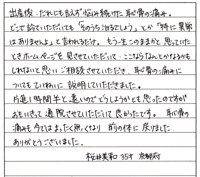 出産後、だれにも言えず悩み続けた恥骨の痛み。
どこで診ていただいても「そのうち治るでしょう」とか「特に異常
はありませんよ」と言われるだけ。もう一生このままかと思っていた
ときホームページを見つけていただいて…ここならなんとかなるかも
しれないと思いご相談させていただき、恥骨の痛みに
ついてていねいに説明していただきました。
片道1時間半と遠いのでどうしようかとも思ったのですが
おもいきって通院させていただいて良かったです。恥骨
の痛みも今はまったく無くなり前のように戻りました。
ありがとうございました。
桜井美和 35才 京都府